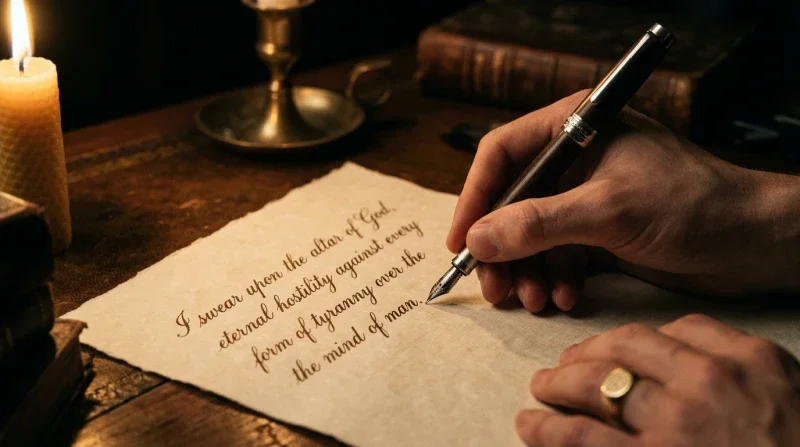 I swear upon the altar of God,
eternal hostility against every
form of tyranny over the
the mind of man.